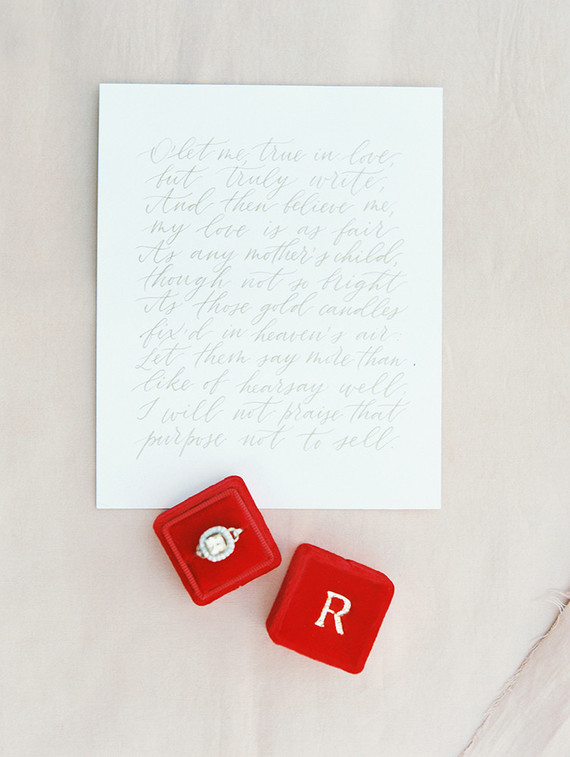 O let me, true in love,
but truly write,
And then believe me,
my love is as fair
As any mother's child,
though not so bright
As those gold candles
fix'd in heaven's air:
Let them say more than
like of hearsay well.
I will not praise that
purpose not to sell.
R